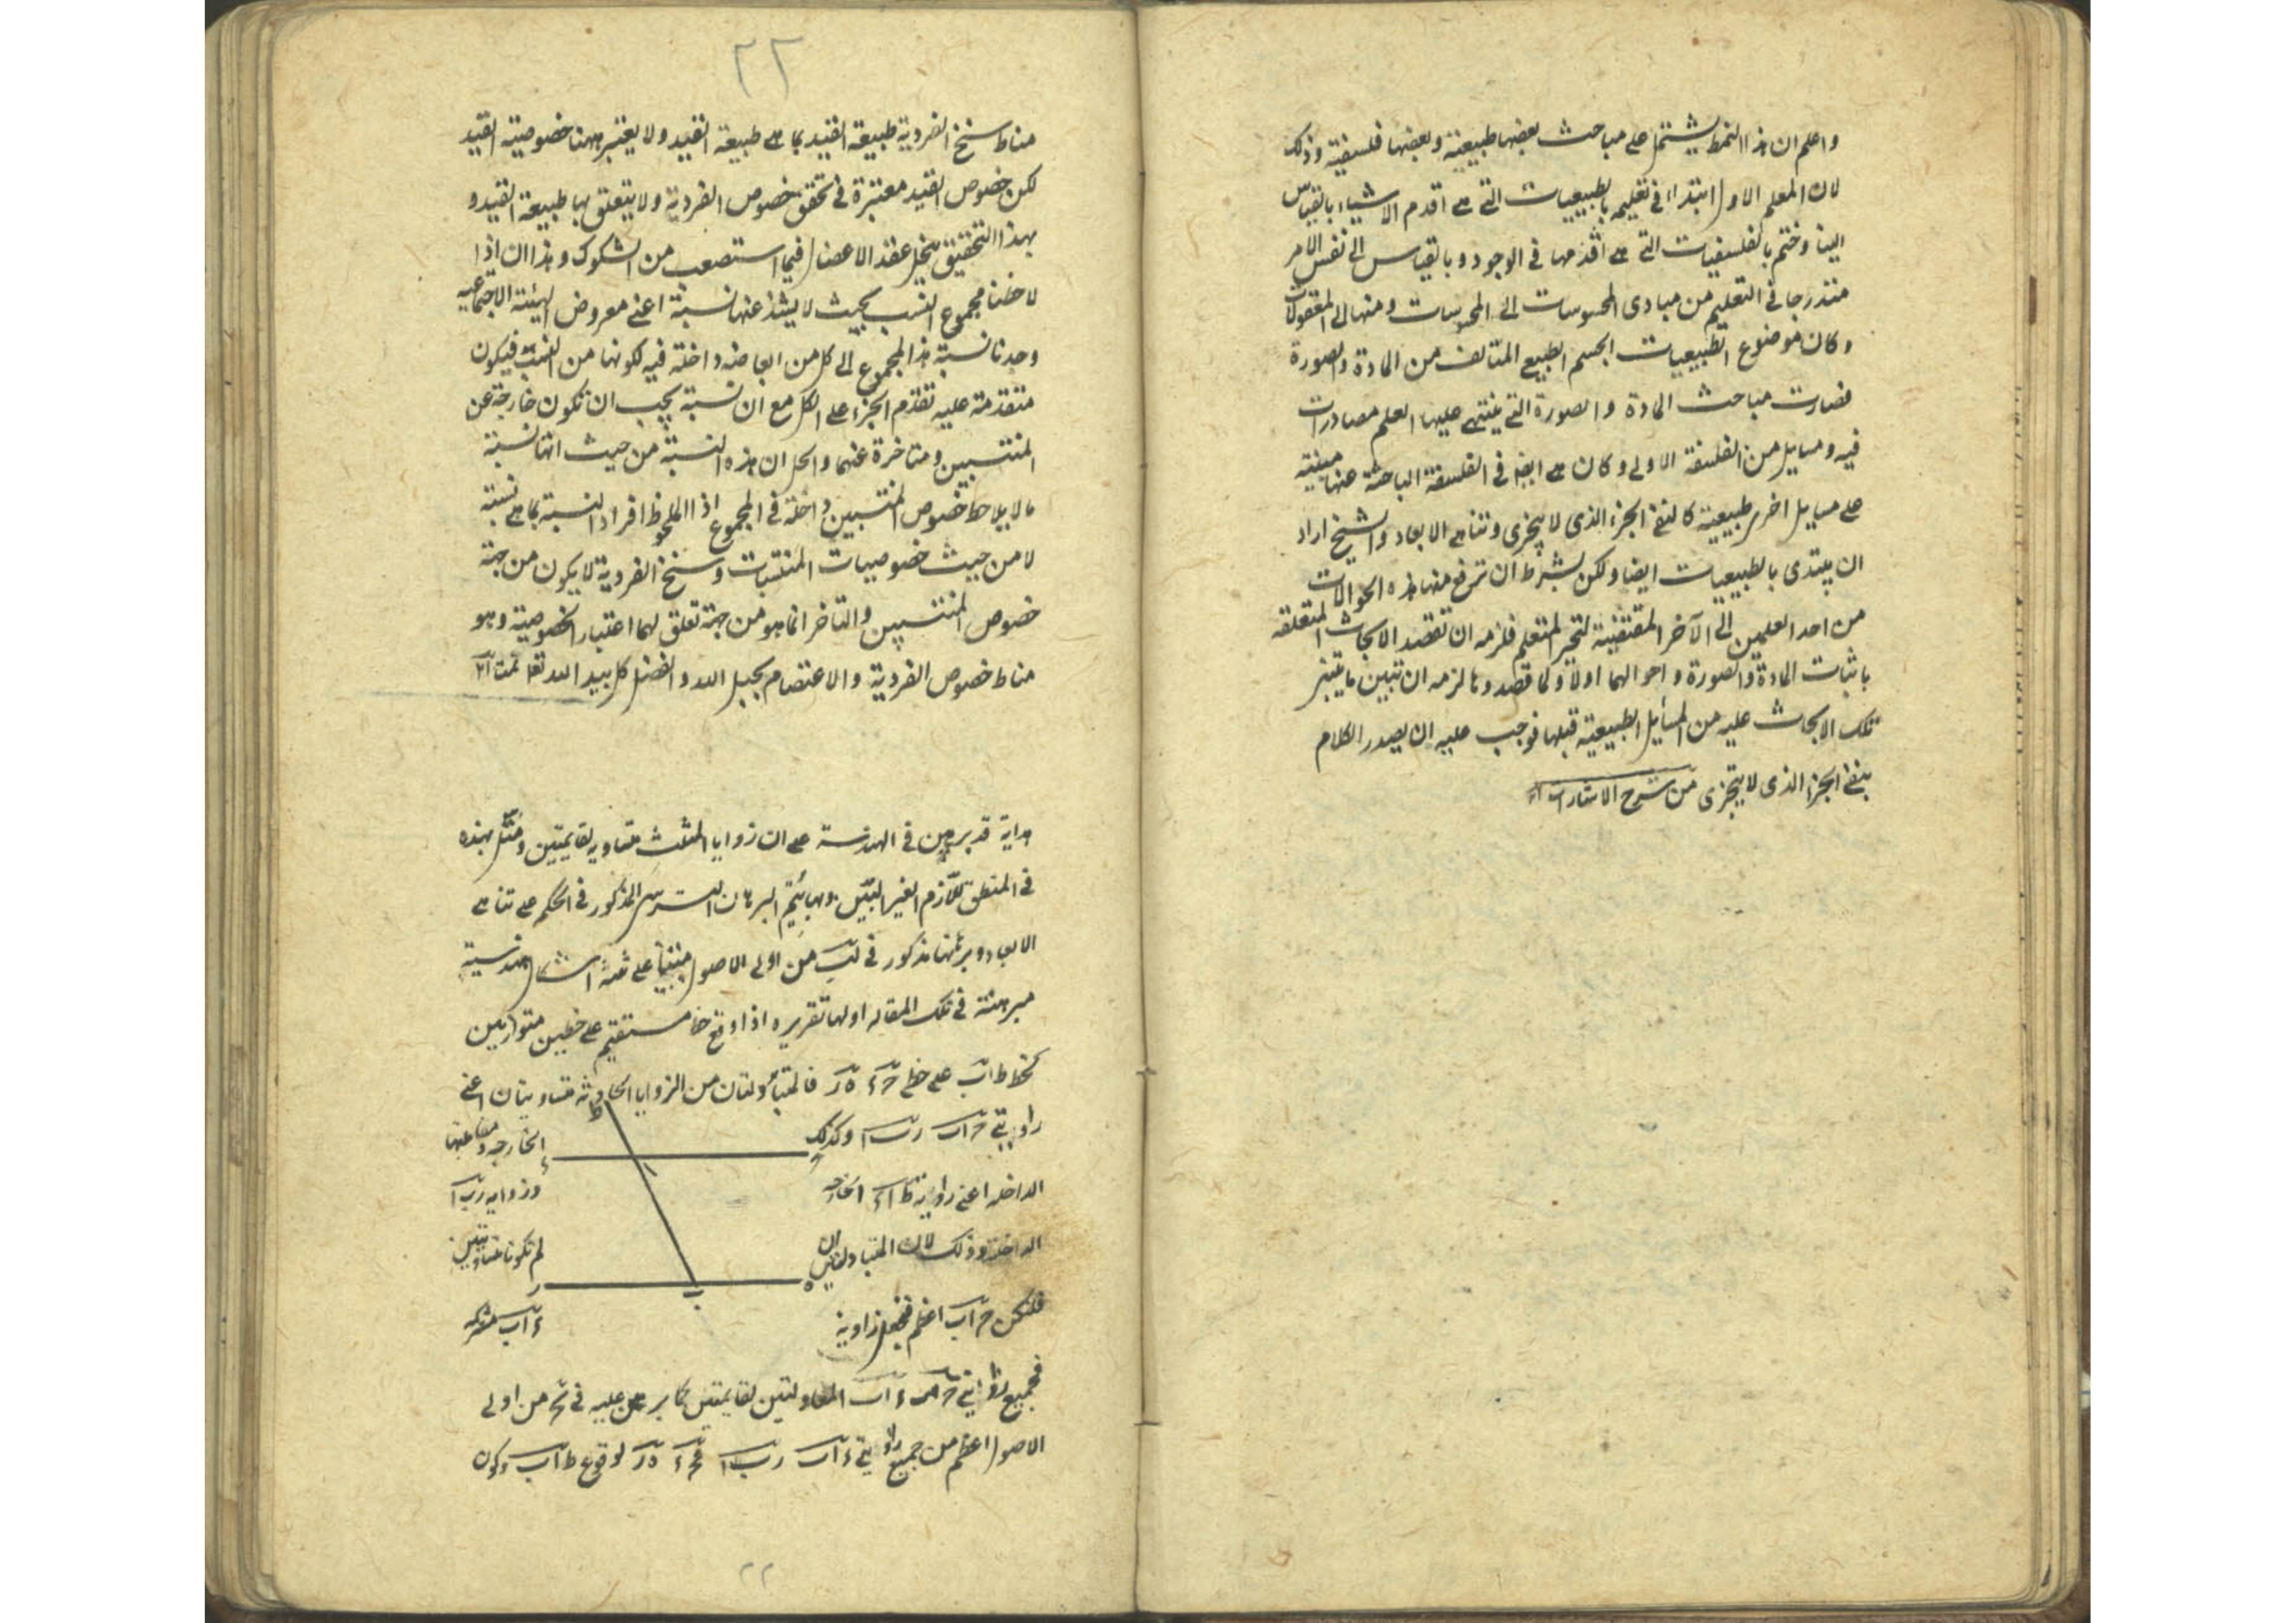 واعلم ان هذا النمط يشتمل على مباحث بعضها طبيعية وبعضها فلسفية وذلك
لان المعلم الاول ابتداء في تعليمه بالطبيعيات التي هي اقدم الاشياء بالقياس
الينا وختم بالفلسفيات التي هي اقدمها في الوجود وبالقياس الى نفس الامر
متدرجا في التعليم من مبادى المحسوسات الى المحسوسات ومنها الى المعقولات
وكان موضوع الطبيعيات الجسم الطبيعي المتالف من المادة والصورة
فصارت مباحث المادة والصورة التي يبتني عليها العلم مصادرات
فيه ومسايل من الفلسفة الاولى وكان هي ايضا في الفلسفة الباحثة عنها مبنية
على مسايل اخرى طبيعية كنفي الجزء الذى لا يتجزى وتناهى الابعاد والشيخ اراد
ان يبتدى بالطبيعيات ايضا ولكن بشرط ان ترفع منها هذه الحوالات
من احد العلمين الى الآخر المقتضية لتحير المتعلم فلزمه ان تقصد الابحاث المتعلقة
باثبات المادة والصورة واحوالهما اولا ولما قصد وها لزمه ان تبين ما يتنبى
تلك الابحاث عليه من المسايل الطبيعية قبلها فوجب عليه ان يصدر الكلام
بنفي الجزء الذى لا يتجزى من شرح الاشارات
٢٢
مناط سنخ الفردية طبيعة القيد بما هي طبيعة القيد ولا يعتبر ههنا خصوصية القيد
لكن خصوص القيد معتبرة في تحقق خصوص الفردية ولا يتعلق بها طبيعة القيد و
بهذا التحقيق ينحل عقد الاعضال فيما استصعب من الشكوك وهذا ان اذا
لاحظنا مجموع النسب بحيث لا يشذ عنها نسبة اعني معروض الهيئة الاجتماعية
وجدنا نسبة هذا المجموع الى كل من ابعاضه داخلة فيه لكونها من النسب فيكون
متقدمة عليه تقدم الجزء على الكل مع ان نسبة يجب ان تكون خارجة عن
المنتسبين ومتاخرة عنهما والحل ان هذه النسبة من حيث انها نسبة
ما لا يلاحظ خصوص المنتسبين داخلة في المجموع اذا الملحوظ افراد النسبة بما هي نسبة
لا من حيث خصوصيات المنتسبات وسنخ الفردية لا يكون من جهة
خصوص المنتسبين والتاخر انما هو من جهة تعلق لهما اعتبار الخصوصية وهو
مناط خصوص الفردية والاعتصام بحبل الله والفضل كل بيد الله تعا تمت
هداية قد برهن في الهندسة على ان زوايا المثلث متساوية لقايمتين ومثل بهذه
في المنطق للازم الغير البين وبها يتم البرهان الترسى المذكور في الحكم على تناهى
الابعاد وبرهنها مذكور في لب من اولى الاصول مبتنيا على ثلثة اشكال هندسية
مبرهنة في تلك المقاله اولها تقريره اذا وقع خط مستقيم على خطين متوازيين
كخط ط اب على خطى حـ ء ه ر فالمتبادلتان من الزوايا الحادثه متساويتان اعنى
زاويتى حـ اب ر ب ا وكذلك الخارجه ومقابلتها
الداخله اعنى زاوية ط ا ء الخارجه وزوايه ر ب ا
الداخلة وذلك لان المتبادلتين ان لم تكونا متساويتين
فلتكن حـ اب اعظم فنجعل زاوية ء اب مشتركه
فجميع زاويتى حـ اب ء اب المعادلتين لقايمتين كما برهن عليه في من اولى
الاصول اعظم من جميع زاويتى ء اب ر ب ا فحـ ء ه ر لوقوع ط اب وكون
ط
ء
ا
حـ
ر
ب
ه
٢٢